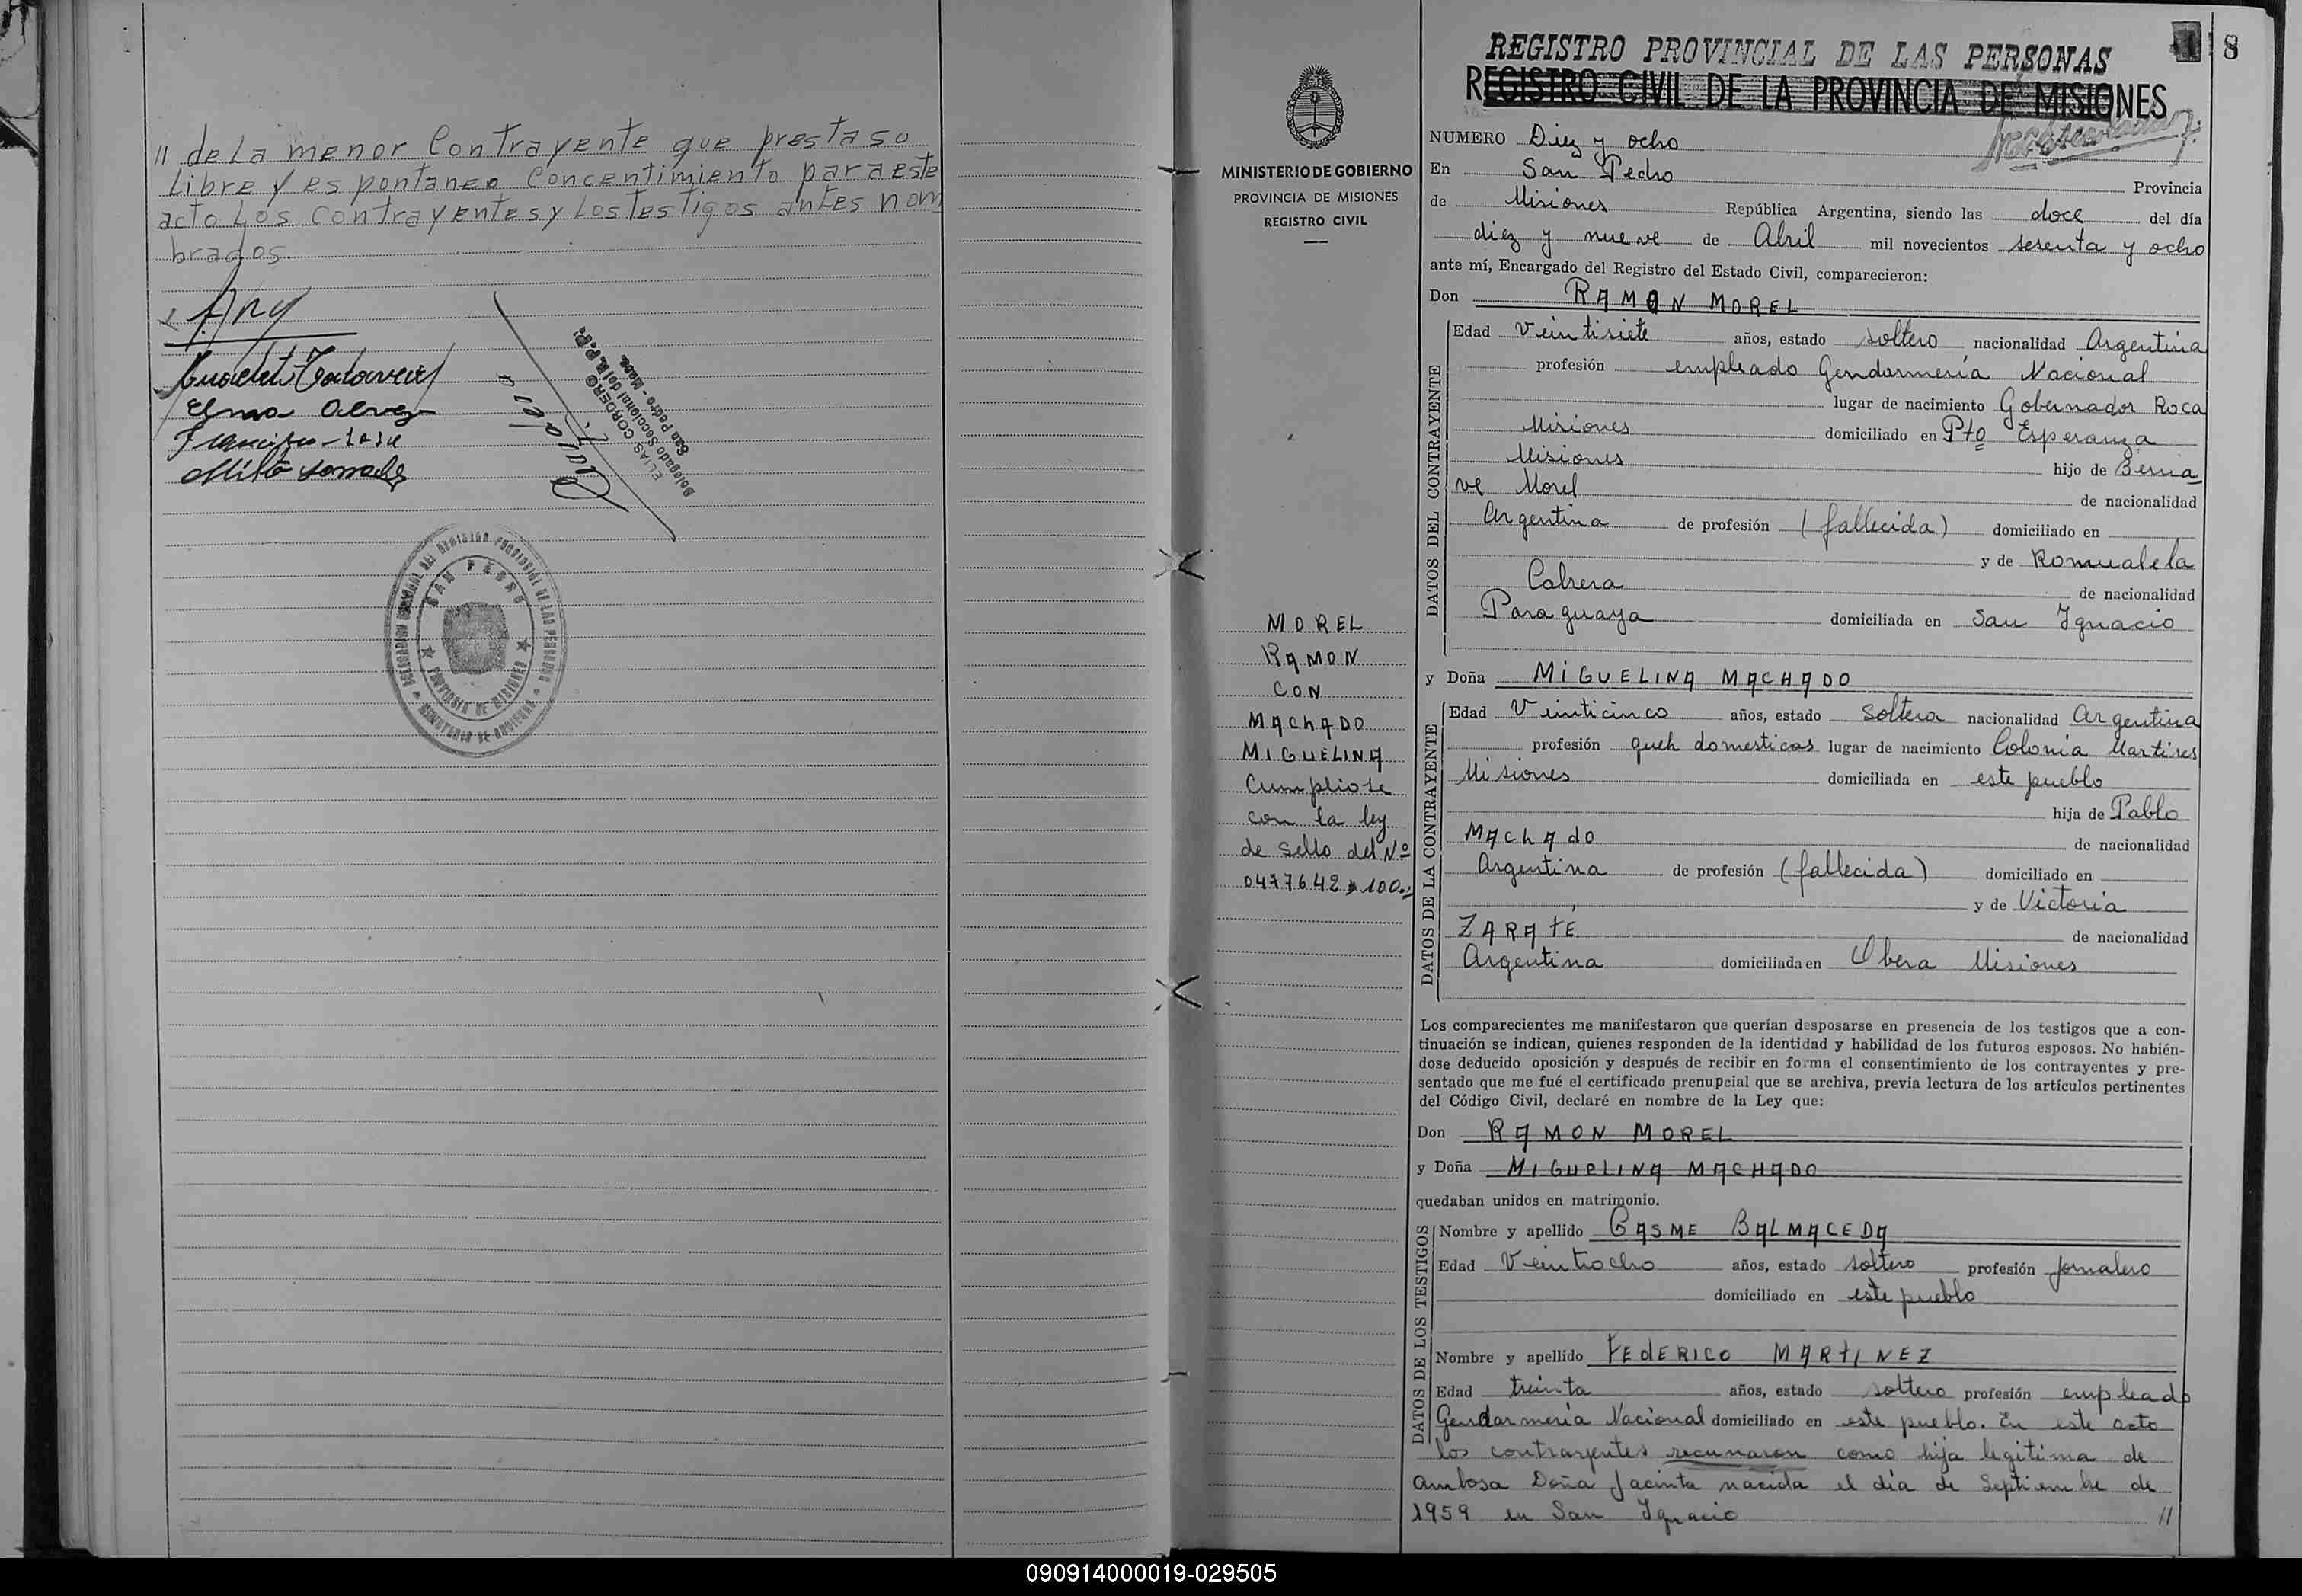 // de La menor Contrayente que presta su
Libre y espontaneo Concentimiento para este
acto Los Contrayentes y Los testigos antes nom
brados.
ELIAS CORDERO
Delegado Seccional del R.P.P.
San Pedro - Mnes.
SAN PEDRO
PROVINCIA DE MISIONES
MINISTERIO DE GOBIERNO
8
REGISTRO PROVINCIAL DE LAS PERSONAS
REGISTRO CIVIL DE LA PROVINCIA DE MISIONES
MINISTERIO DE GOBIERNO
PROVINCIA DE MISIONES
REGISTRO CIVIL
MOREL
RAMON
CON
MACHADO
MIGUELINA
Cumpliose
con la ley
de sello del Nº
0477642 $ 100.,
NUMERO Diez y ocho
En San Pedro Provincia
de Misiones República Argentina, siendo las doce del día
diez y nueve de Abril mil novecientos sesenta y ocho
ante mí, Encargado del Registro del Estado Civil, comparecieron:
Don RAMON MOREL
DATOS DEL CONTRAYENTE
Edad Veintisiete años, estado soltero nacionalidad Argentina
profesión empleado Gendarmeria Nacional
lugar de nacimiento Gobernador Roca
Misiones domiciliado en Pto Esperanza
Misiones hijo de Berna
ve Morel de nacionalidad
Argentina de profesión (fallecida) domiciliado en
y de Romualela
Cabrera de nacionalidad
Paraguaya domiciliada en San Ignacio
y Doña MIGUELINA MACHADO
DATOS DE LA CONTRAYENTE
Edad Veinticinco años, estado Soltera nacionalidad Argentina
profesión queh domesticos lugar de nacimiento Colonia Martires
Misiones domiciliada en este pueblo
hija de Pablo
MACHAdo de nacionalidad
Argentina de profesión (fallecida) domiciliado en
y de Victoria
ZARATE de nacionalidad
Argentina domiciliada en Obera Misiones
Los comparecientes me manifestaron que querían desposarse en presencia de los testigos que a con-
tinuación se indican, quienes responden de la identidad y habilidad de los futuros esposos. No habién-
dose deducido oposición y después de recibir en forma el consentimiento de los contrayentes y pre-
sentado que me fué el certificado prenupcial que se archiva, previa lectura de los artículos pertinentes
del Código Civil, declaré en nombre de la Ley que:
Don RAMON MOREL
y Doña MIGUELINA MACHADO
quedaban unidos en matrimonio.
DATOS DE LOS TESTIGOS
Nombre y apellido GASME BALMACEDA
Edad Veintiocho años, estado soltero profesión jornalero
domiciliado en este pueblo
Nombre y apellido FEdERICO MARtINEZ
Edad treinta años, estado soltero profesión empleado
Gendarmeria Nacional domiciliado en este pueblo. En este acto
los contrayentes recunaron como hija legitima de
ambosa Doña Jacinta nacida el día de Septiembre de
1959 en San Ignacio //
090914000019-029505